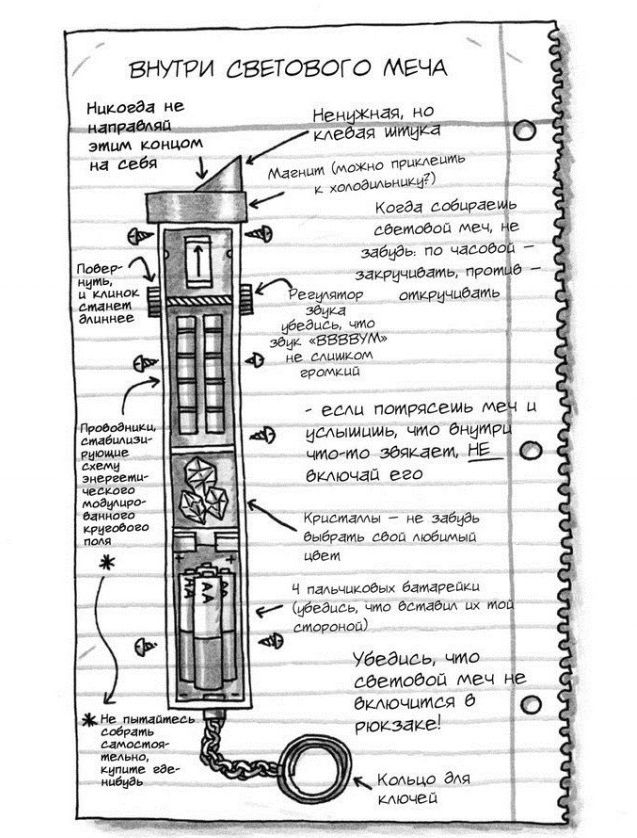 ВНУТРИ СВЕТОВОГО МЕЧА
Никогда не
направляй
этим концом
на себя
Ненужная, но
клевая штука
Магнит (можно приклеить
к холодильнику?)
Когда собираешь
световой меч, не
забудь: по часовой –
закручивать, против –
откручивать
Повер-
нуть,
и клинок
станет
длиннее
Регулятор
звука
убедись, что
звук «ВВВВУМ»
не слишком
громкий
- если потрясешь меч и
услышишь, что внутри
что-то звякает, НЕ
включай его
Проводники,
стабилизи-
рующие
схему
энергети-
ческого
модулиро-
ванного
кругового
поля
*
Кристаллы – не забудь
выбрать свой любимый
цвет
4 пальчиковых батарейки
(убедись, что вставил их той
стороной)
AA
AA
AA
Убедись, что
световой меч не
включится в
рюкзаке!
* Не пытайтесь
собрать
самостоя-
тельно,
купите где-
нибудь
Кольцо для
ключей